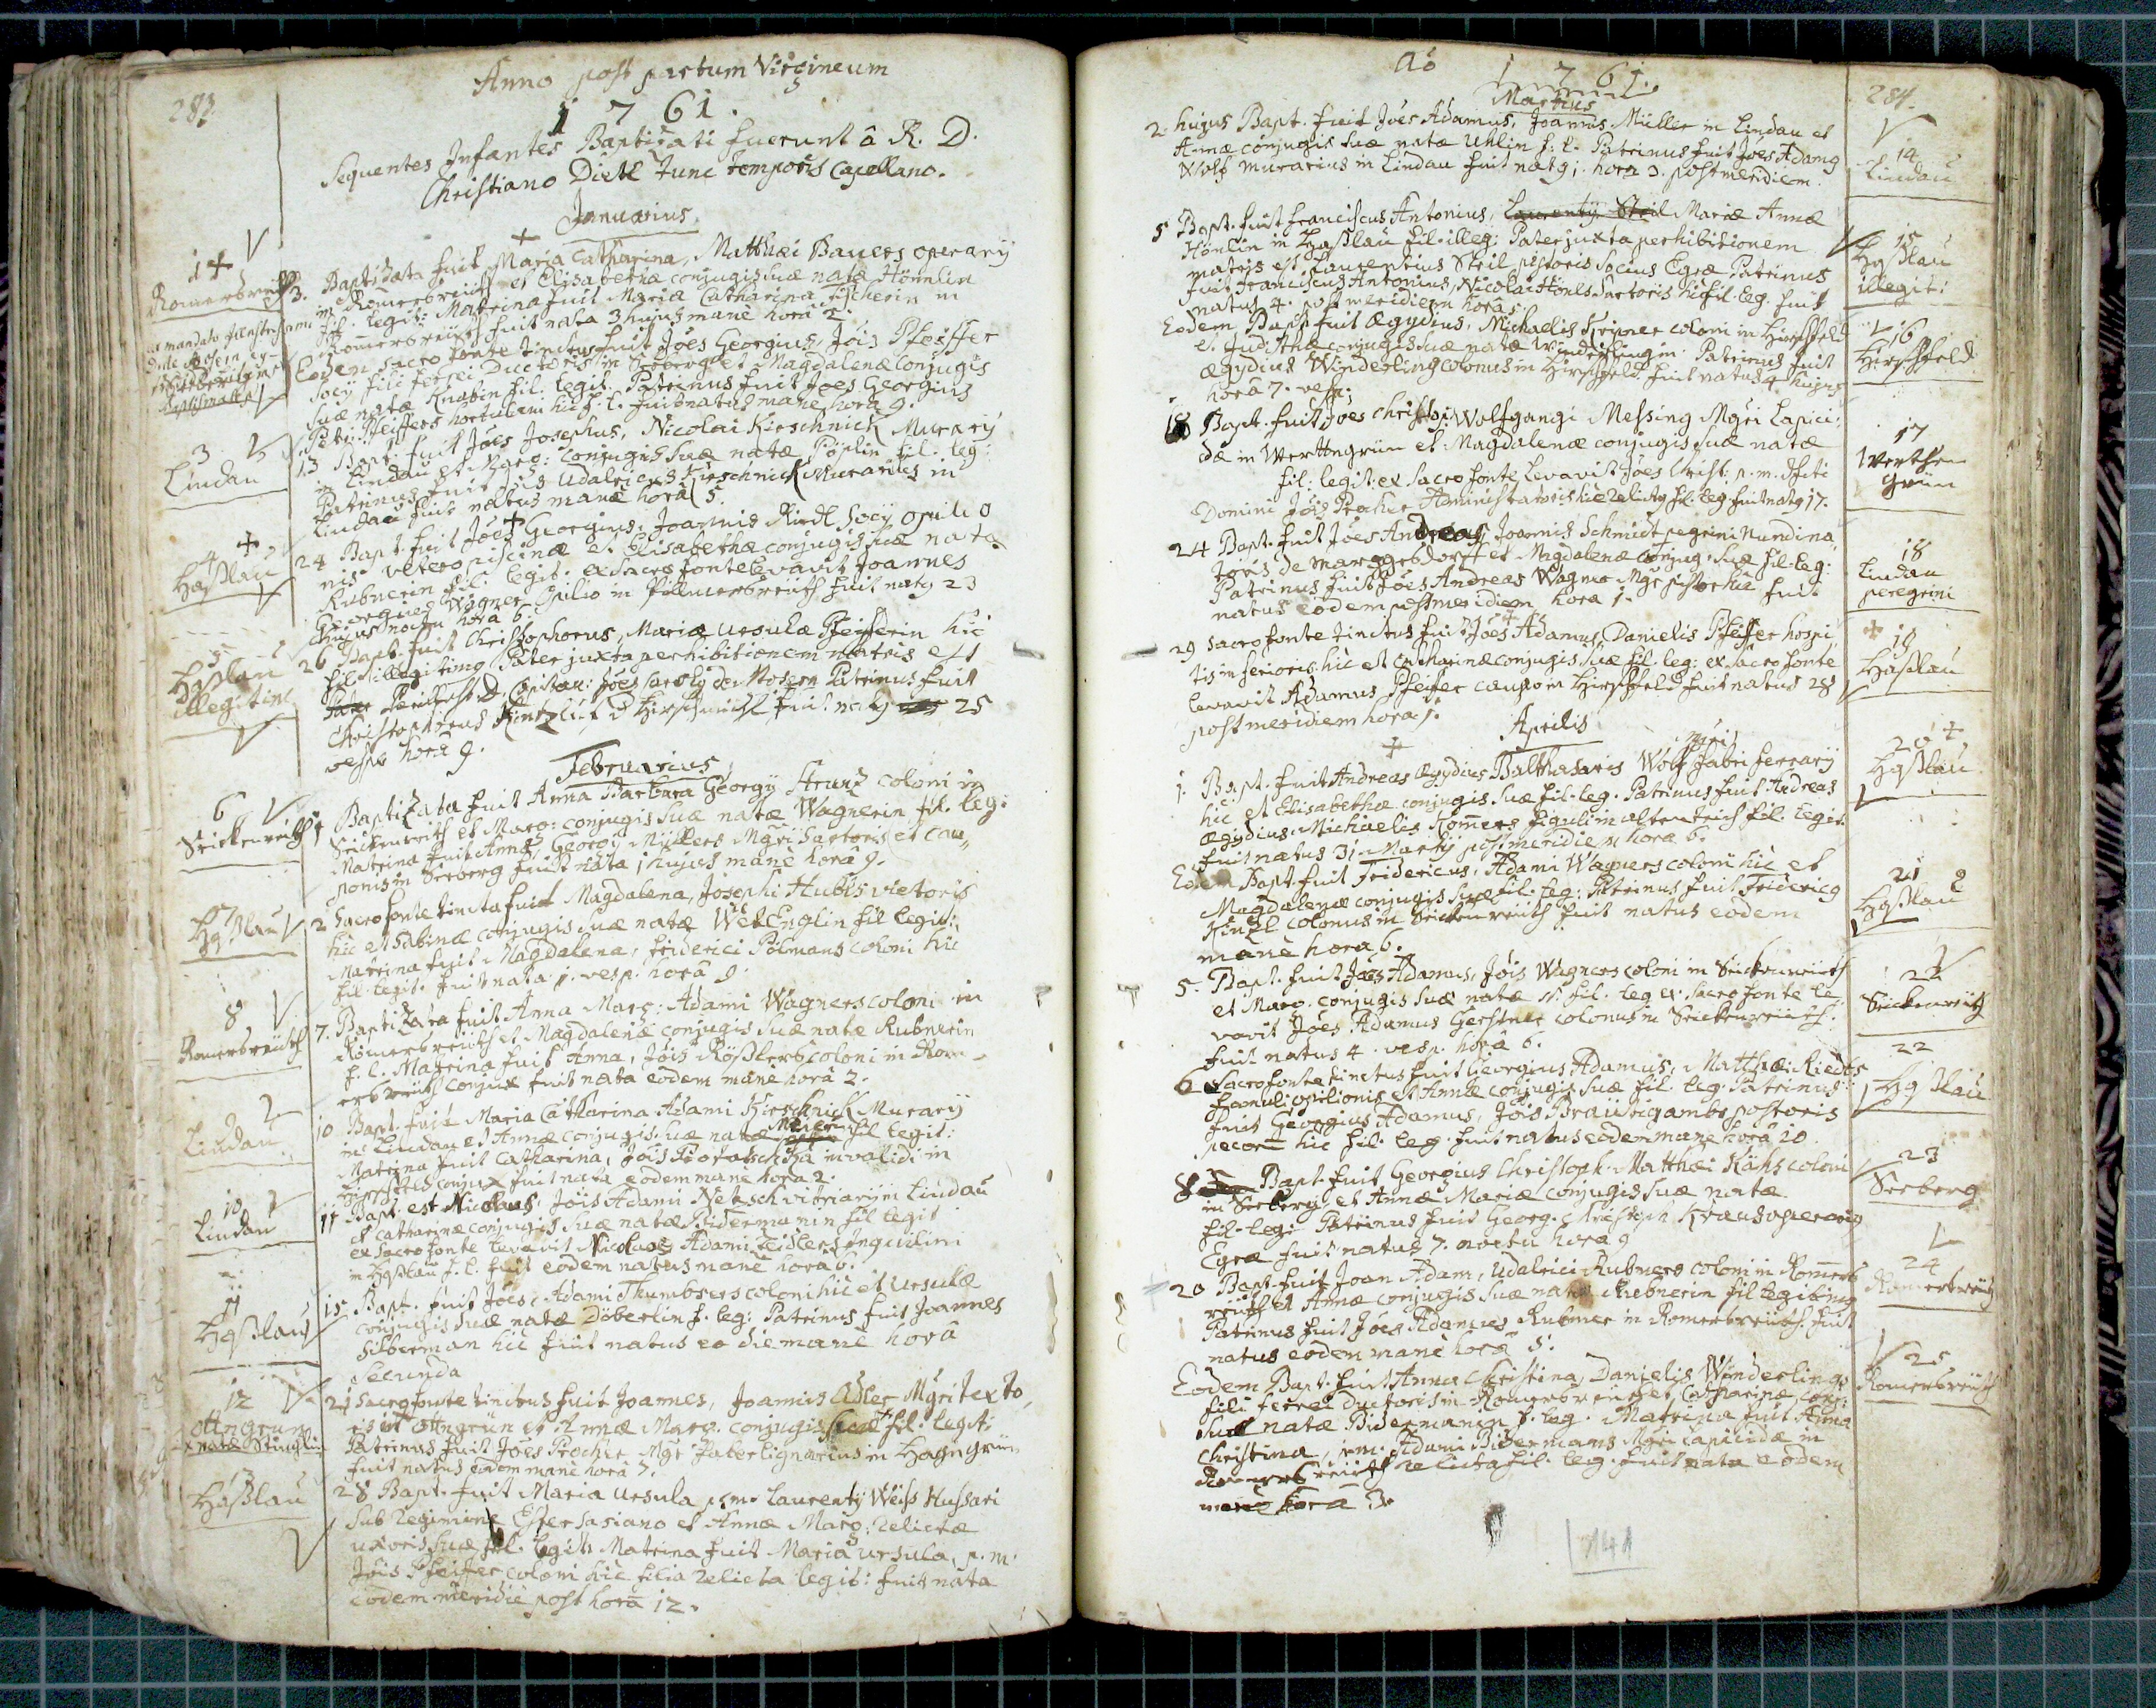 283.
Anno post partum Virgineum
1761.
Sequentes Infantes Baptizati fuerunt â R. D.
Christiano Dietl tunc temporis Capellano.
Januarius
1 +
Romerbreüth
3. Baptizata fuit Maria Catharina, Matthæi Bauers operarÿ
in Romerbreüth et Elisabethæ conjugis suæ natæ Hönnlin
fil. legit: Matrina fuit Maria Catharina fischerin in
Romerbreüth fuit nata 3 hujus mane hora 2.
Eodem sacro fonte tinctus fuit Joes Georgius, Jois Pfeiffer
socÿ fili ferrei Ductoris in Seeberg et Magdalenæ conjugis
suæ natæ Knabin fil. legit. Patrinus fuit Joes Georgius
Petri Pfeiffers hortulani hic f. l. fuit natus mane hora 9.
3
Lindau
13 Bapt. fuit Joes Josephus, Nicolai Kirschnick Murarÿ
in Lindau et Marg: conjugis suæ natæ Pöplin fil. leg:
Patrinus fuit Jois Udalricus Kirschnick Murarius in
Lindau fuit natus mane hora 5.
4 +
Haßlau
24 Bapt. fuit Joes Georgius, Joannis Riedl Socÿ opilio
nis vetero piscinæ et Elisabethæ conjugis suæ nata
Rubnerin fil. legit. ex sacro fonte levavit Joannes
Georgius Wagner Opilio in Pillmerbreüth fuit natg 23
hujus noctu hora 6.
5
Haßlau
illegitimi
26 Bapt. fuit Christophorus, Mariæ Ursulæ Pfeifferin hic
fil. illegitimg Pater juxta perhibitionem matris est
Joes Carolg de Mosern Patrinus fuit
Christophorus fuit natg 25
vesp. hora 9.
Februarius
6
Seickenreüth
1 Baptizata fuit Anna Barbara Georgÿ Strunz coloni in
Seickenreith et Marg: conjugis suæ natæ Wagnerin fil. leg:
Matrina fuit Anna, Georgÿ Müllers Mgri Sartoris et cau
ponis in Seeberg fuit nata 1 hujus mane hora 9.
7
Haßlau
2 Sacro fonte tincta fuit Magdalena, Josephi Hubls vietoris
hic et Sabinæ conjugis suæ natæ Wek Englin fil legit:
Matrina fuit Magdalena, friderici Pölmans coloni hic
fil. legit. fuit nata 1. vesp. hora 9.
8
Romerbreüth
7. Baptizata fuit Anna Marg: Adami Wagners coloni in
Römerbreüth et Magdalenæ conjugis suæ natæ Rubnerin
f. l. Matrina fuit Anna, Jois Rößlers coloni in Rom
erbreüth conjux fuit nata eodem mane hora 2.
9
Lindau
10 Bapt. fuit Maria Catharina Adami Kirschnick Murarÿ
in Lindau et Annæ conjugis suæ natæ fil legit:
Matrina fuit Catharina, Jois invalidi in
Hirschfeld conjux fuit nata eodem mane hora 2.
10
Lindau
11 Bapt. est Nicolaus, Jois Adami Netsch vitriarÿ in Lindau
et Catharinæ conjugis suæ natæ Bidermanin fil legit
ex sacro fonte levavit Nicolaus Adami Zeidlers inquilini
in Haßlau f. l. fuit eodem natus mane hora 6.
11
Haßlau
15. Bapt. fuit Joes, Adami Thumbsers coloni hic et Ursulæ
conjugis suæ natæ Döberlin f. leg: Patrinus fuit Joannes
Silberman hic fuit natus eo die mane hora
Secunda
12
Ottngrun
natæ Stinglin
21 Sacro fonte tinctus fuit Joannes, Joannis Adler Mgri texto
ris in Ottngrün et Annæ Marg. conjugis suæ fil. legit:
Patrinus fuit Joes Procher Mgr faber lignarius in Hagngrün
fuit natus eodem mane hora 7.
13
Haßlau
28 Bapt. fuit Maria Ursula p. m. Laurentÿ Weiss Hussari
sub Regimine Esterhasiano et Annæ Marg: Relictæ
uxoris suæ fil. legit. Matrina fuit Maria Ursula, p. m.
Jois Pfeiffer coloni hic filia Relicta legit: fuit nata
eodem meridie post hora 12.
Aõ 1761.
284.
Martius
14
Lindau
2 hujus Bapt. fuit Joes Adamus, Joannis Müller in Lindau et
Annæ conjugis suæ natæ Uhlin f. l. Patrinus fuit Joes Adamg
Wolf murarius in Lindau fuit natg 1. hora 3. post meridiem
15
Haßlau
illegit:
5 Bapt. fuit franciscus Antonius, Laurentÿ Steil Mariæ Annæ
Hönlin in Haßlau fil. illeg: Pater juxta perhibitionem
matris est Laurentius Steil pistoris Socius Egræ Patrinus
fuit franciscus Antonius, Nicolai Hönls Sartoris hic fil. leg. fuit
natus 4. post meridiem hora 5.
16
Hirschfeld
Eodem Bapt. fuit Ægydius, Michaelis Kripner coloni in Hirschfeld
et Judithæ conjugis suæ natæ Winderlingin. Patrinus fuit
Ægydius Winderling colonus in Hirschfeld. fuit natus 4 hujus
hora 7. vesp.
17
Werthen
grün
18 Bapt. fuit Joes Christoph: Wolfgangi Messing Mgri Lapici
dæ in Werttngrün et Magdalenæ conjugis suæ natæ
fil: legit: ex sacro fonte levavit Joes Christ: p. m.
Domini Jois Procher Administratoris hic Relictg fil. leg. fuit natg 17.
18
Lindau
peregrini
24 Bapt. fuit Joes Andreas, Joannis Schmidt pegrini Nundina
toris de Marggrebdorff et Magdalenæ conjug. suæ fil. leg:
Patrinus fuit Joes Andreas Wagner Mgr pistor hic fuit
natus eodem post meridiem hora 1.
+ 19
Haßlau
29 Sacro fonte tinctus fuit Joes Adamus, Danielis Pfeiffer hospi
tis inferioris hic et Catharinæ conjugis suæ fil. leg: ex sacro fonte
levavit Adamus Pfeiffer caupo in Hirschfeld fuit natus 28
post meridiem hora 1.
Aprilis
20 +
Haßlau
1. Bapt. fuit Andreas Ægydius Balthasaris Wolf Mgri fabri ferrarÿ
hic et Elisabethæ conjugis suæ fil. leg. Patrinus fuit Andreas
Ægydius, Michaelis Komers figuli in altenteich fil. legit.
fuit natus 31 Martÿ post meridiem hora 6.
21
Haßlau
Eodem Bapt. fuit Fridericus, Adami Wagners coloni hic et
Magdalenæ conjugis suæ fil. leg: Patrinus fuit Fridericg
Künzl colonus in Seickenreüth fuit natus eodem
mane hora 6.
22
Seickenreüth
5. Bapt. fuit Joes Adamus, Jois Wagners coloni in Seickenreüth
et Marg. conjugis suæ natæ N. fil. leg ex sacro fonte le
vavit Joes Adamus Gerstner colonus in Seickenreüth.
fuit natus 4. vesp. hora 6.
22
Haßlau
6 Sacro fonte tinctus fuit Georgius Adamus, Matthæi Riedls
famuli opilionis et Annæ conjugis suæ fil. leg. Patrinus
fuit Georgius Adamus, Jois pastoris
pecorum hic fil. leg. fuit natus eodem mane hora 10.
23
Seeberg
8 Bapt. fuit Georgius Christoph. Matthæi Kähs coloni
in Seeberg et Annæ Mariæ conjugis suæ natæ
fil. leg. Patrinus fuit Georg. Christoph Kraus operarig
Egræ fuit natus 7. noctu hora 9
24
Romerbreüth
20 Bapt. fuit Joan Adam, Udalrici Rubners coloni in Romerb
reüth et Annæ conjugis suæ natæ Rubnerin fil legitimg
Patrinus fuit Joes Adamus Rubner in Romerbreüth. fuit
natus eodem mane hora 5.
25
Romerbreüth
Eodem Bapt. fuit Anna Christina, Danielis Winderlings
fili ferrei ductoris in Romerbreüth et Catharinæ conj:
suæ natæ Bidermanin f. leg. Matrina fuit Anna
Christina, p. m. Adami Bidermans Mgri Lapicidæ in
Romerbreüth relicta fil. leg. fuit nata eodem
mane hora 3.
141